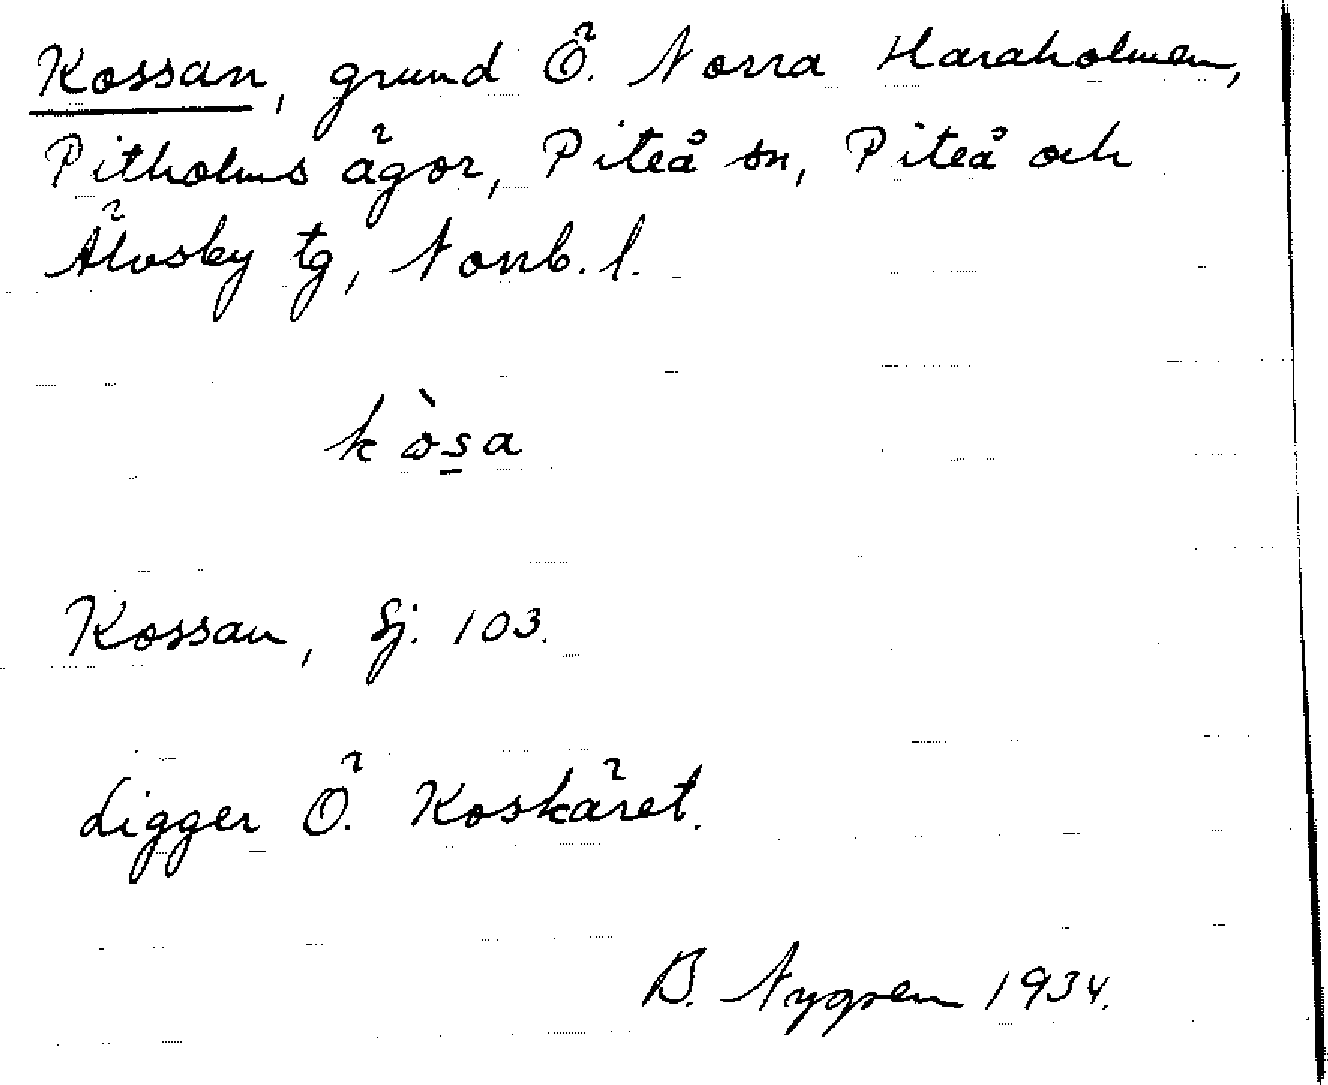 Kossan, grund Ö. Norra Haraholmen,
Pitholms ägor, Piteå sn, Piteå och
Älvsby tg, Norrb. l.
kòs̱a
Kossan, Sj. 103.
Ligger Ö. Koskäret.
B. Nygren 1934.